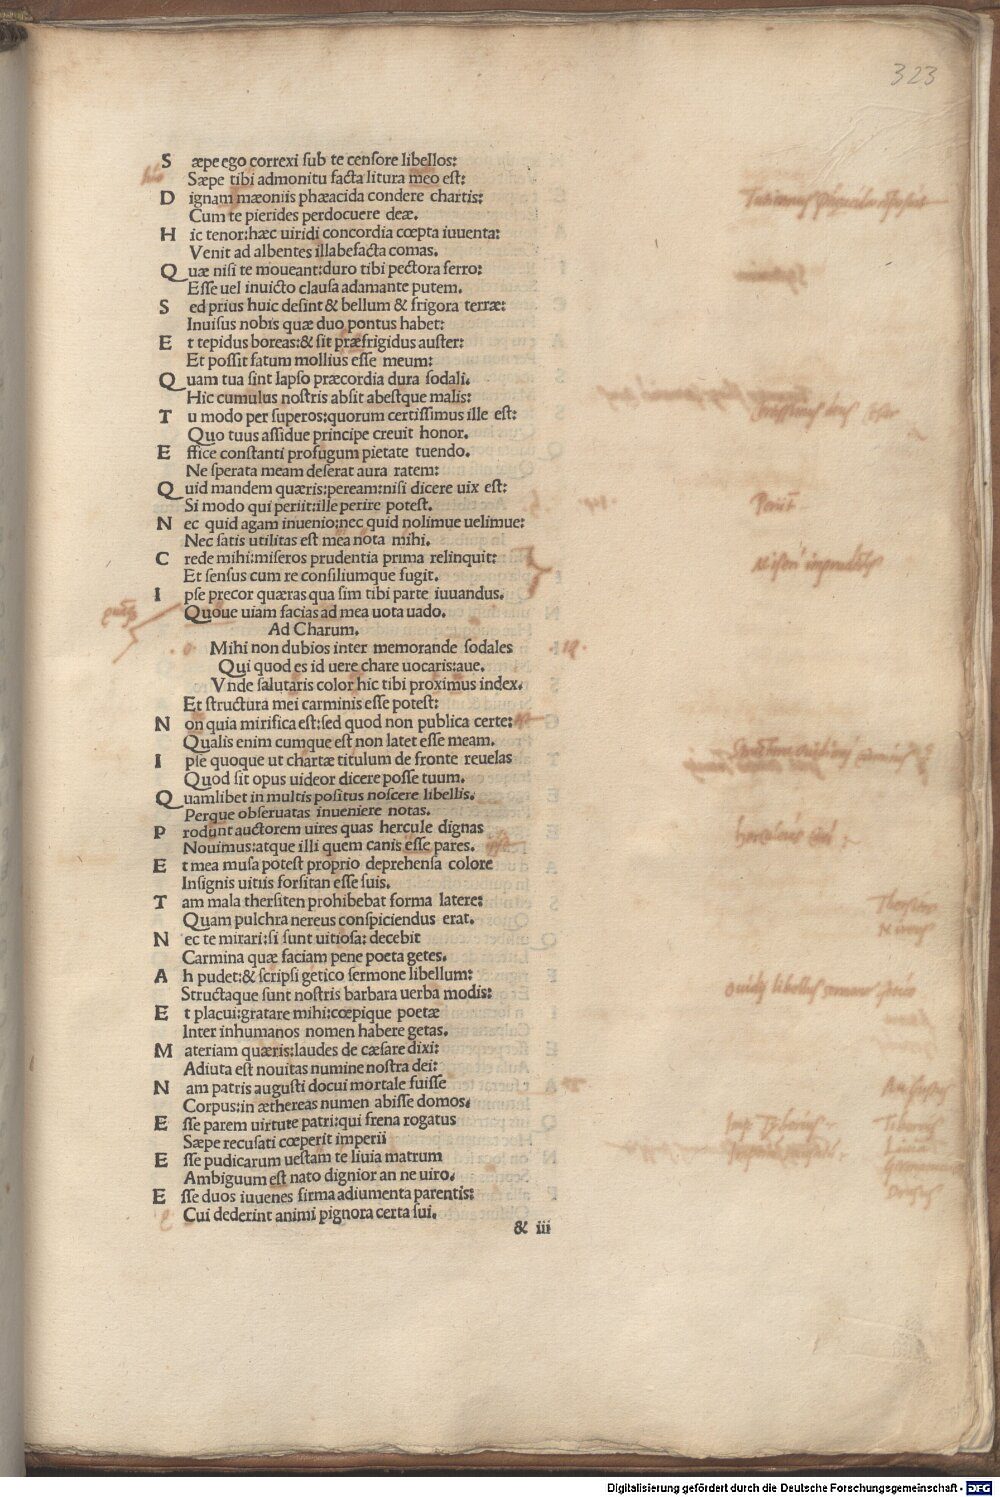 323
S æpe ego correxi ſub te cenſore libellos:
Sæpe tibi admonitu facta litura meo eſt:
D ignam mæoniis phæacida condere chartis:
Cum te pierides perdocuere deæ.
H ic tenor:hæc uiridi concordia cœpta iuuenta:
Venit ad albentes illabefacta comas.
Q uæ niſi te moueant:duro tibi pectora ferro:
Eſſe uel inuicto clauſa adamante putem.
S ed prius huic deſint & bellum & frigora terræ:
Inuiſus nobis quæ duo pontus habet:
E t tepidus boreas:& ſit præfrigidus auſter:
Et poſſit fatum mollius eſſe meum:
Q uam tua ſint lapſo præcordia dura ſodali.
Hic cumulus noſtris abſit abeſtque malis:
T u modo per ſuperos:quorum certiſſimus ille eſt:
Quo tuus aſſidue principe creuit honor.
E ffice conſtanti profugum pietate tuendo.
Ne ſperata meam deſerat aura ratem:
Q uid mandem quæris:peream:niſi dicere uix eſt:
Si modo qui periit:ille perire poteſt.
N ec quid agam inuenio:nec quid nolimue uelimue:
Nec ſatis utilitas eſt mea nota mihi.
C rede mihi:miſeros prudentia prima relinquit:
Et ſenſus cum re conſiliumque fugit.
I pſe precor quæras qua ſim tibi parte iuuandus.
Quoue uiam facias ad mea uota uado.
Ad Charum.
Mihi non dubios inter memorande ſodales
Qui quod es id uere chare uocaris:aue.
Vnde ſalutaris color hic tibi proximus index.
Et ſtructura mei carminis eſſe poteſt:
N on quia mirifica eſt:ſed quod non publica certe:
Qualis enim cumque eſt non latet eſſe meam.
I pſe quoque ut chartæ titulum de fronte reuelas
Quod ſit opus uideor dicere poſſe tuum.
Q uamlibet in multis poſitus noſcere libellis.
Perque obſeruatas inueniere notas.
P rodunt auctorem uires quas hercule dignas
Nouimus:atque illi quem canis eſſe pares.
E t mea muſa poteſt proprio deprehenſa colore
Inſignis uitiis forſitan eſſe ſuis.
T am mala therſiten prohibebat forma latere:
Quam pulchra nereus conſpiciendus erat.
N ec te mirari:ſi ſunt uitioſa: decebit
Carmina quæ faciam pene poeta getes.
A h pudet:& ſcripſi getico ſermone libellum:
Structaque ſunt noſtris barbara uerba modis:
E t placui:gratare mihi:cœpique poetæ
Inter inhumanos nomen habere getas.
M ateriam quæris:laudes de cæſare dixi:
Adiuta eſt nouitas numine noſtra dei:
N am patris auguſti docui mortale fuiſſe
Corpus:in æthereas numen abiſſe domos.
E ſſe parem uirtute patri:qui frena rogatus
Sæpe recuſati cœperit imperii
E ſſe pudicarum ueſtam te liuia matrum
Ambiguum eſt nato dignior an ne uiro.
E ſſe duos iuuenes firma adiumenta parentis:
Cui dederint animi pignora certa ſui.
& iii
Digitalisierung gefördert durch die Deutsche Forschungsgemeinschaft - DFG